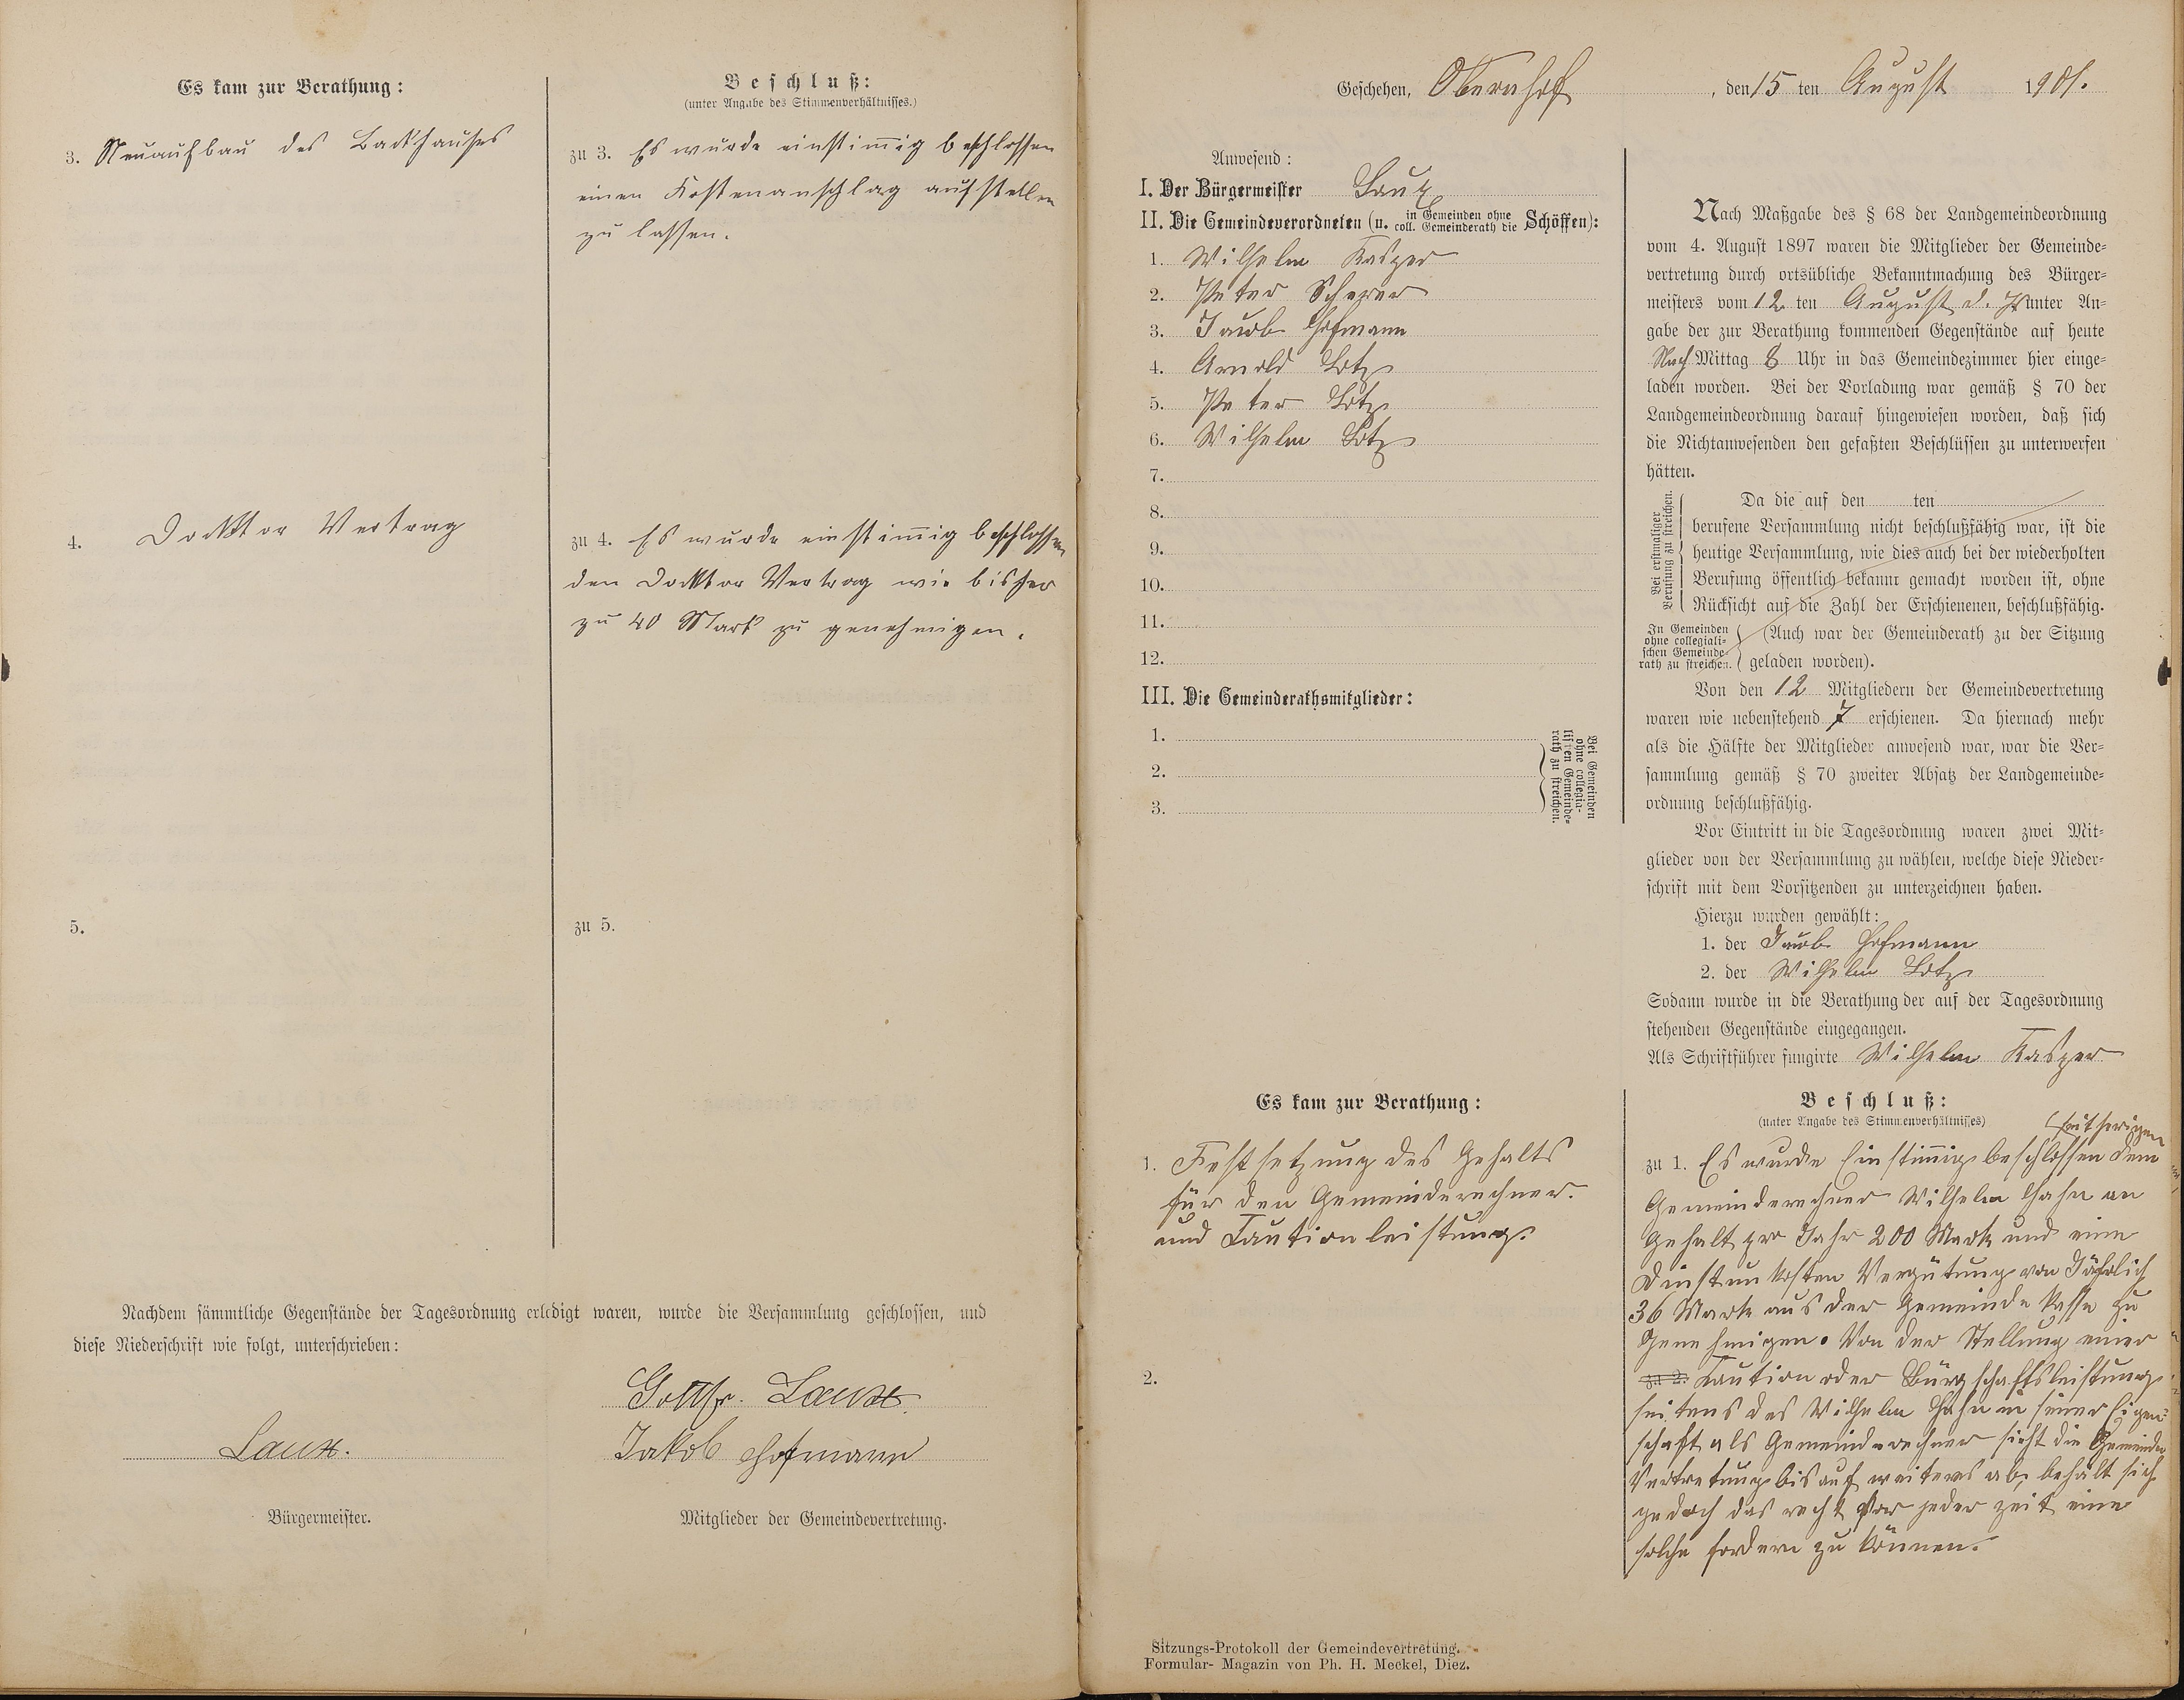 Es kam zur Berathung:
Beschluß:
(unter Angabe des Stimmenverhältnisses.)
3. Neuaufbau des Backhauses
zu 3. Es wurde einstim̅ig beschlossen
einen Kostenanschlag aufstellen
zu lassen.
4. Docktor Vertrag
zu 4. Es wurde einstim̅ig beschlossen
den Docktor Vertrag wie bisher
zu 40 Mark zu genehmigen.
5.
zu 5.
Nachdem sämmtliche Gegenstände der Tagesordnung erledigt waren, wurde die Versammlung geschlossen, und
diese Niederschrift wie folgt, unterschrieben:
Gottfr. Laux
Laux.
Jakob Hofmann
Bürgermeister.
Mitglieder der Gemeindevertretung.
Geschehen, Obernhof, den 15 ten August 1901.
Anwesend:
I. Der Bürgermeister Laux
II. Die Gemeindeverordneten (u. in Gemeinden ohne coll. Gemeinderath die Schöffen):
1. Wilhelm Kasper
2. Peter Scherer
3. Jacob Hofmann
4. Arnold Lotz
5. Peter Lotz
6. Wilhelm Lotz
7.
8.
9.
10.
11.
12.
III. Die Gemeinderathsmitglieder:
1.
2.
3.
Bei Gemeinden
ohne collegia-
lischen Gemeinde-
rath zu streichen.
Nach Maßgabe des § 68 der Landgemeindeordnung
vom 4. August 1897 waren die Mitglieder der Gemeinde-
vertretung durch ortsübliche Bekanntmachung des Bürger-
meisters vom 12 ten August d. J. unter An-
gabe der zur Berathung kommenden Gegenstände auf heute
Nach Mittag 8 Uhr in das Gemeindezimmer hier einge-
laden worden. Bei der Vorladung war gemäß § 70 der
Landgemeindeordnung darauf hingewiesen worden, daß sich
die Nichtanwesenden den gefaßten Beschlüssen zu unterwerfen
hätten.
Bei erstmaliger
Berufung zu streichen.
Da die auf den ten
berufene Versammlung nicht beschlußfähig war, ist die
heutige Versammlung, wie dies auch bei der wiederholten
Berufung öffentlich bekannt gemacht worden ist, ohne
Rücksicht auf die Zahl der Erschienenen, beschlußfähig.
In Gemeinden
ohne collegiali-
schen Gemeinde-
rath zu streichen.
(Auch war der Gemeinderath zu der Sitzung
geladen worden).
Von den 12 Mitgliedern der Gemeindevertretung
waren wie nebenstehend 7 erschienen. Da hiernach mehr
als die Hälfte der Mitglieder anwesend war, war die Ver-
sammlung gemäß § 70 zweiter Absatz der Landgemeinde-
ordnung beschlußfähig.
Vor Eintritt in die Tagesordnung waren zwei Mit-
glieder von der Versammlung zu wählen, welche diese Nieder-
schrift mit dem Vorsitzenden zu unterzeichnen haben.
Hierzu wurden gewählt:
1. der Jacob Hofmann
2. der Wilhelm Lotz
Sodann wurde in die Berathung der auf der Tagesordnung
stehenden Gegenstände eingegangen.
Als Schriftführer fungirte Wilhelm Kasper
Es kam zur Berathung:
1. Festsetzung des Gehalts
für den Gemeinderechner.
und Caution leistung.
2.
Beschluß:
(unter Angabe des Stimmenverhältnisses)
(seitherigen
zu 1. Es wurde Einstim̅ig beschlossen dem
Gemeinderechner Wilhelm Hahn an
Gehalt pro Jahr 200 Mark und eine
Dinstunkosten Vergütung von Jährlich
36 Mark aus der Gemeinde kasse zu
Genehmigen. Von der Stellung einer
zu 2. Kaution oder Bürgschaftsleistung
seitens des Wilhelm Hahn in seiner Eigen-
schaft als Gemeinderechner sieht die Gemeinde
Vertretung bis auf weiteres ab, behält sich
jedoch das recht vor jeder zeit eine
solche fordern zu können.
Sitzungs-Protokoll der Gemeindevertretung.
Formular-Magazin von Ph. H. Meckel, Diez.